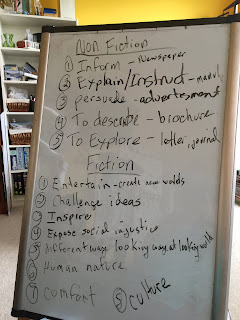 Non Fiction
① Inform - Newspaper
② Explain/Instruct - manual
③ persuade - advertesment
④ To describe - brochure
⑤ To Explore - letter, journal
Fiction
① Entertain - create new wolds
② Challenge ideas
③ Inspire
④ Expose social injustice
⑤ different ways looking way at looking world
⑥ Human nature
⑦ comfort ⑧ culture